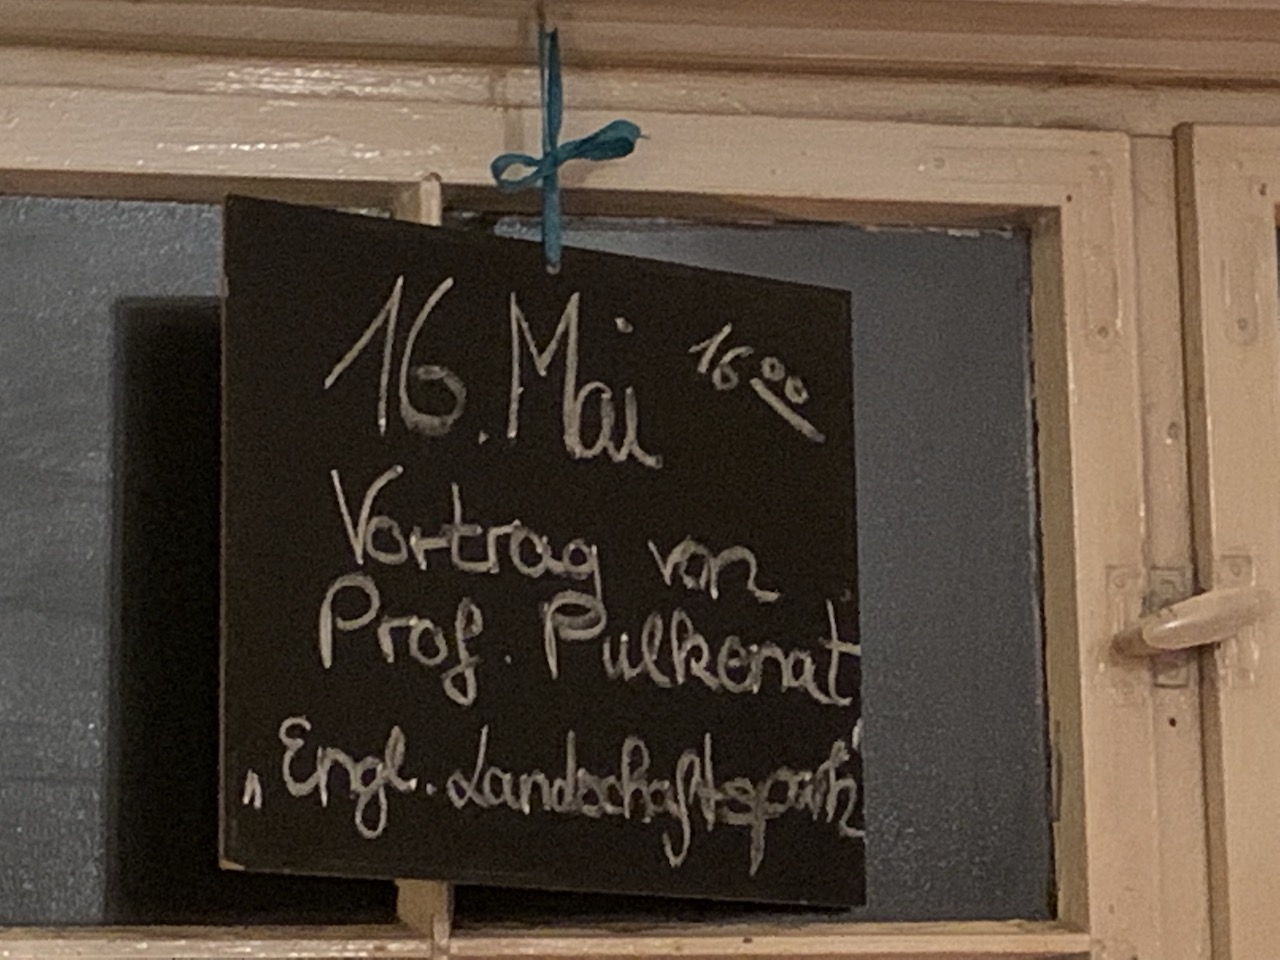 16. Mai 16⁰⁰
Vortrag von
Prof. Pulkenat
„Engl. Landschaftspark“